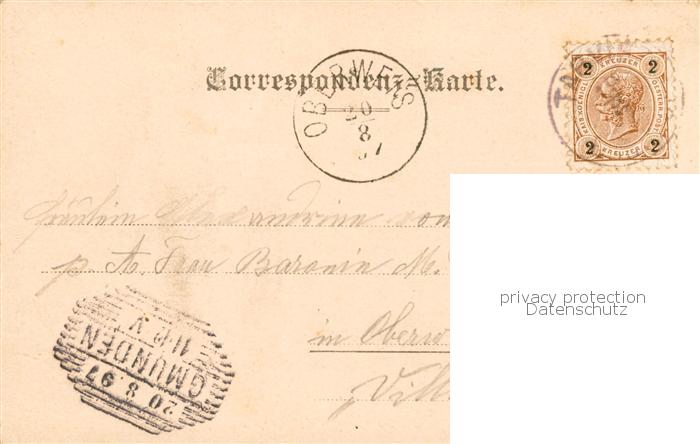 Correspondenz-Karte.
OBERWEIS
20
8
97
2 KREUZER 2
KAIS. KOENIGL. OESTERR. POST.
2 KREUZER 2
Fräulein Alexandrine von
p. A. Frau Baronin M.
in Oberw
Vill
privacy protection
Datenschutz
GMUNDEN
20 8 97